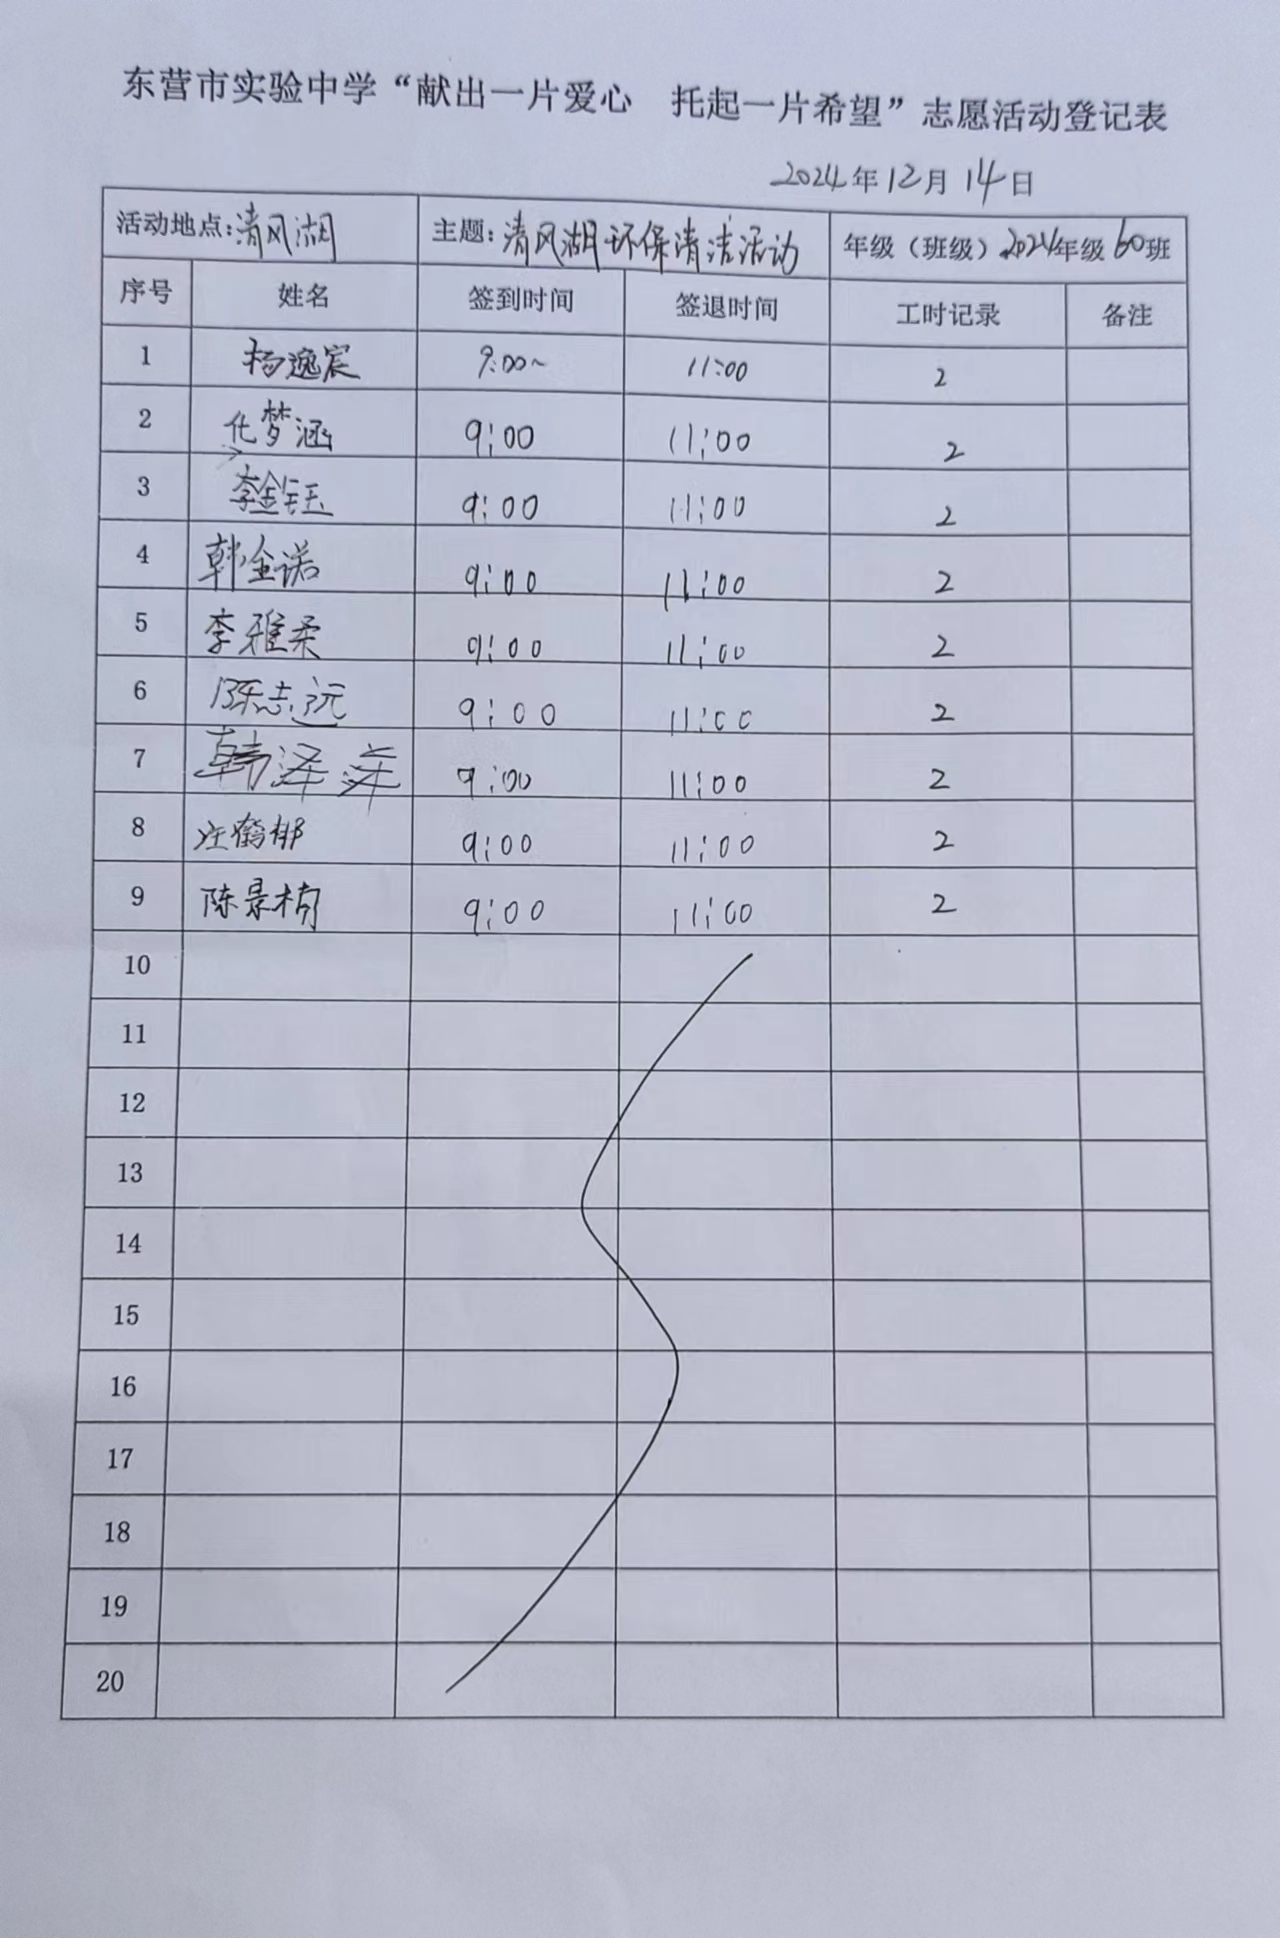 东营市实验中学“献出一片爱心 托起一片希望”志愿活动登记表
2024年12月14日
活动地点:清风湖 主题:清风湖环保清洁活动 年级（班级）2024年级60班
序号 姓名 签到时间 签退时间 工时记录 备注
1 杨逸宸 9:00~ 11:00 2
2 化梦涵 9:00 11:00 2
3 李金钰 9:00 11:00 2
4 韩金诺 9:00 11:00 2
5 李雅柔 9:00 11:00 2
6 陈志远 9:00 11:00 2
7 韩泽 9:00 11:00 2
8 汪鹤 9:00 11:00 2
9 陈景楠 9:00 11:00 2
10
11
12
13
14
15
16
17
18
19
20